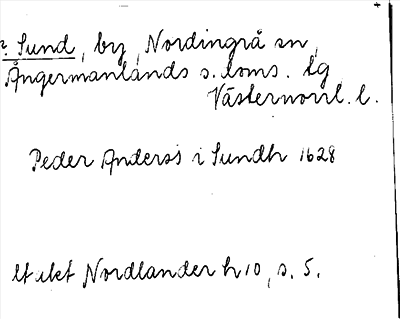 2. Sund, by, Nordingrå sn,
Ångermanlands s. doms. lg
Västernorrl. l.
Peder Anderss i Sundh 1628
Utdebt Nordlander h 10, s. 5.